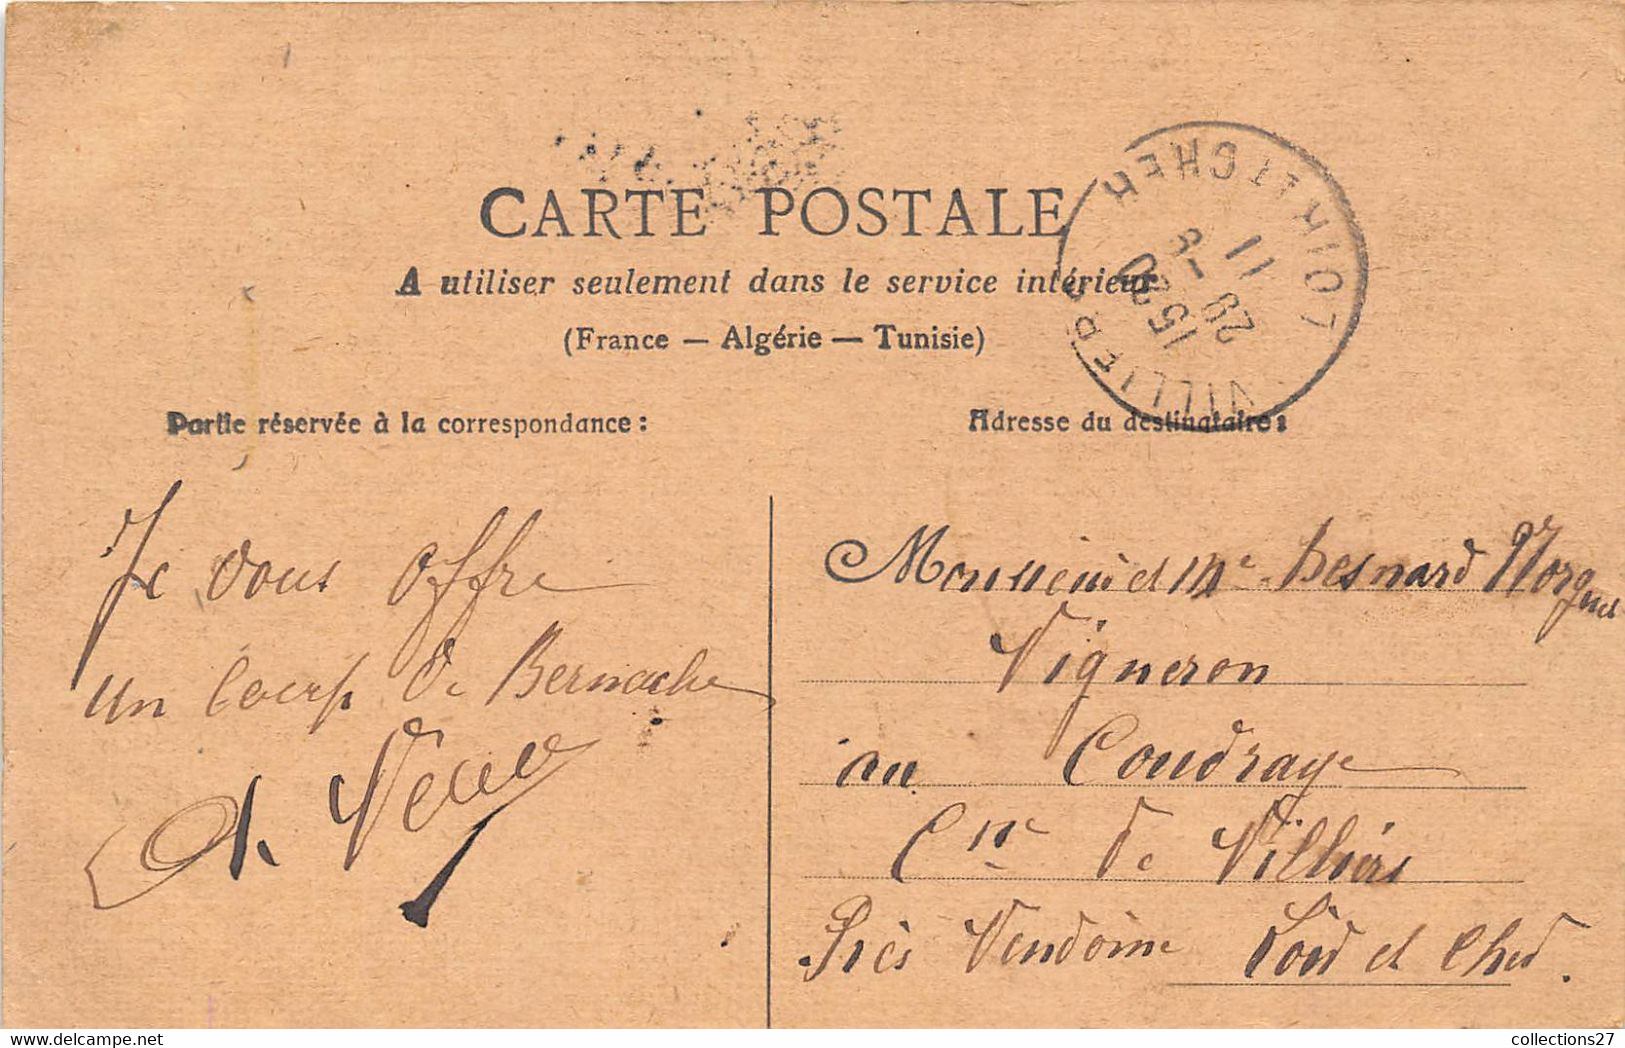 CARTE POSTALE
A utiliser seulement dans le service intérieur
(France — Algérie — Tunisie)
LOIR ET CHER
VILLIERS
15 30
29 - 9
11
Partie réservée à la correspondance :
Adresse du destinataire :
Je vous offre
un Coup de Bernache
Monsieur et Me Besnard
Vigneron
au Coudraye
Cne de Villiers
Près Vendôme Loir et Cher.
collections27